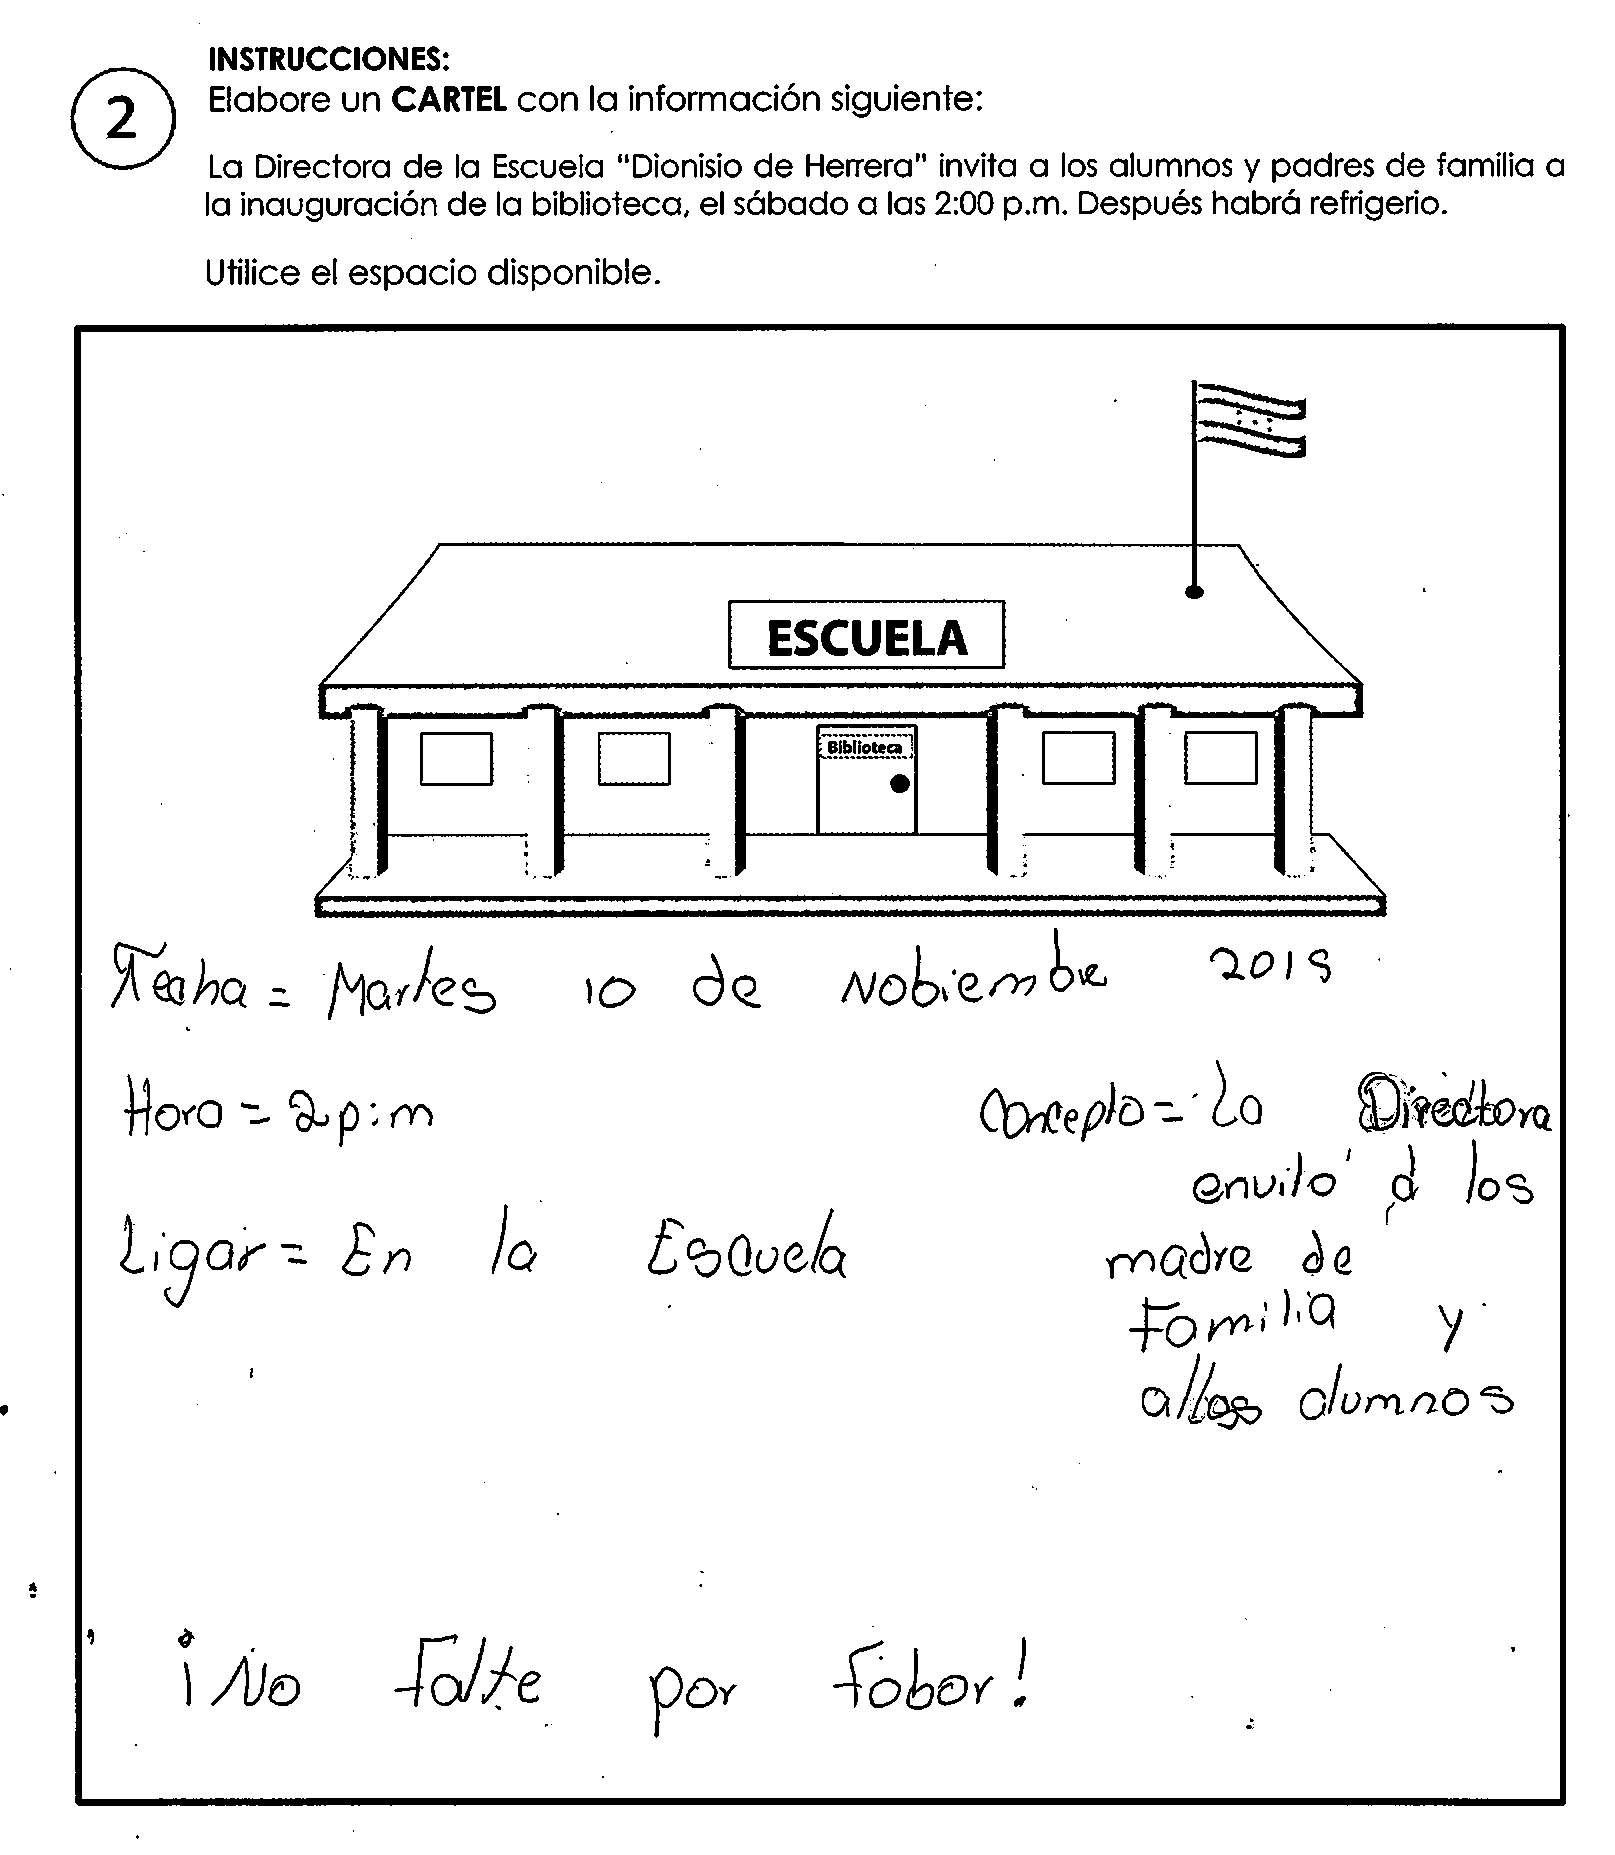 INSTRUCCIONES:
2
Elabore un CARTEL con la información siguiente:
La Directora de la Escuela "Dionisio de Herrera" invita a los alumnos y padres de familia a
la inauguración de la biblioteca, el sábado a las 2:00 p.m. Después habrá refrigerio.
Utilice el espacio disponible.
ESCUELA
Biblioteca
Fecha = Martes 10 de Nobiembre 2015
Hora = 2 p:m
Ligar = En la Escuela
Concepto = La Directora
envito a los
madre de
Familia y
allos alumnos
¡No Falte por fabor!